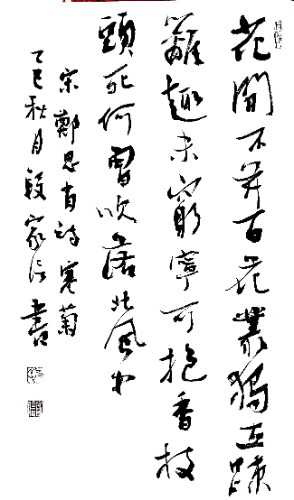 花開不并百花叢獨立疎
籬趣未窮寧可抱香枝
頭死何曾吹落北風中
宋鄭思肖詩寒菊
乙巳秋月段家書